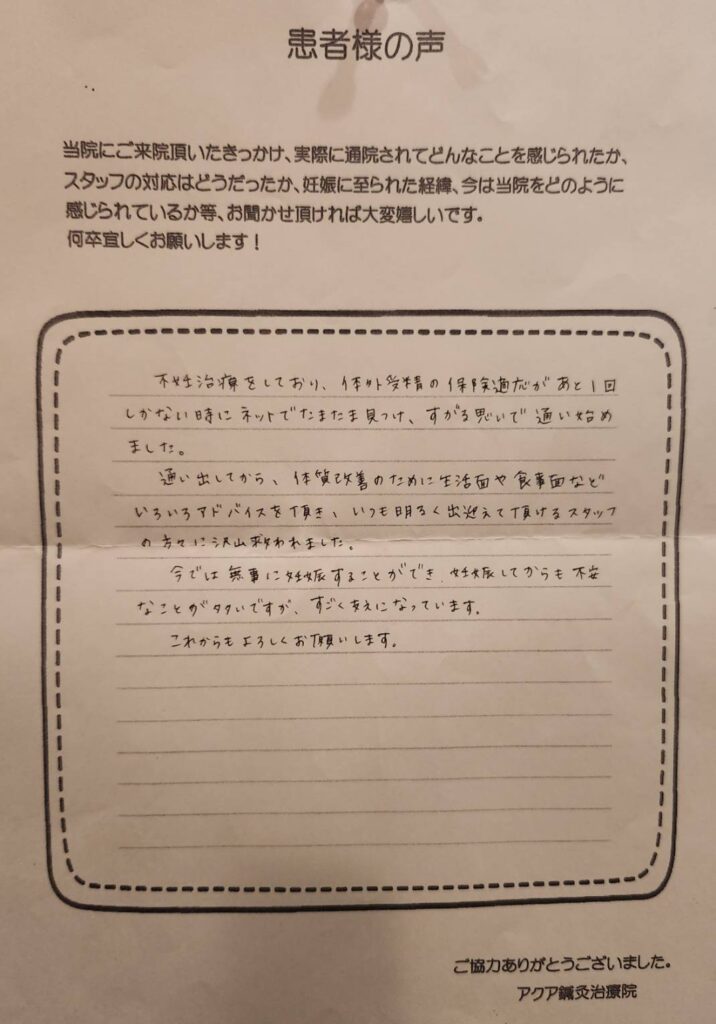 患者様の声
当院にご来院頂いたきっかけ、実際に通院されてどんなことを感じられたか、
スタッフの対応はどうだったか、妊娠に至られた経緯、今は当院をどのように
感じられているか等、お聞かせ頂ければ大変嬉しいです。
何卒宜しくお願いします！
不妊治療をしており、体外受精の保険適応があと1回
しかない時にネットでたまたま見つけ、すがる思いで通い始め
ました。
通い出してから、体質改善のために生活面や食事面など
いろいろアドバイスを頂き、いつも明るく出迎えて頂けるスタッフ
の方々に沢山救われました。
今では無事に妊娠することができ、妊娠してからも不安
なことが多いですが、すごく支えになっています。
これからもよろしくお願いします。
ご協力ありがとうございました。
アクア鍼灸治療院